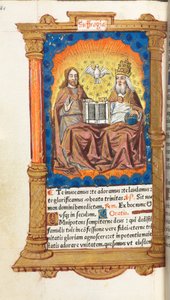 Suffragia
Te invocamus: te adoramus: te laudamus: t
te glorificamus o beata trinitas. Sit nom
men domini benedictum. Ex hoc nunc
usq; in seculum. Oratio.
Omnipotens sempiterne deus: qui dedisti
famulis tuis in confessione vere fidei eterne tri
nitatis gloriam agnoscere: et in potentia maies
tatis adorare unitatem: quesumus ut eiusdem